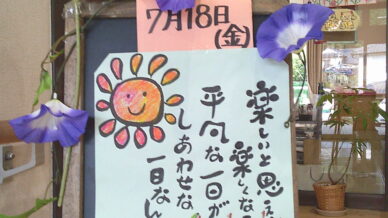 7月18日
(金)
楽しいと思え
楽しくなる
平凡な一日が
しあわせな
一日なん